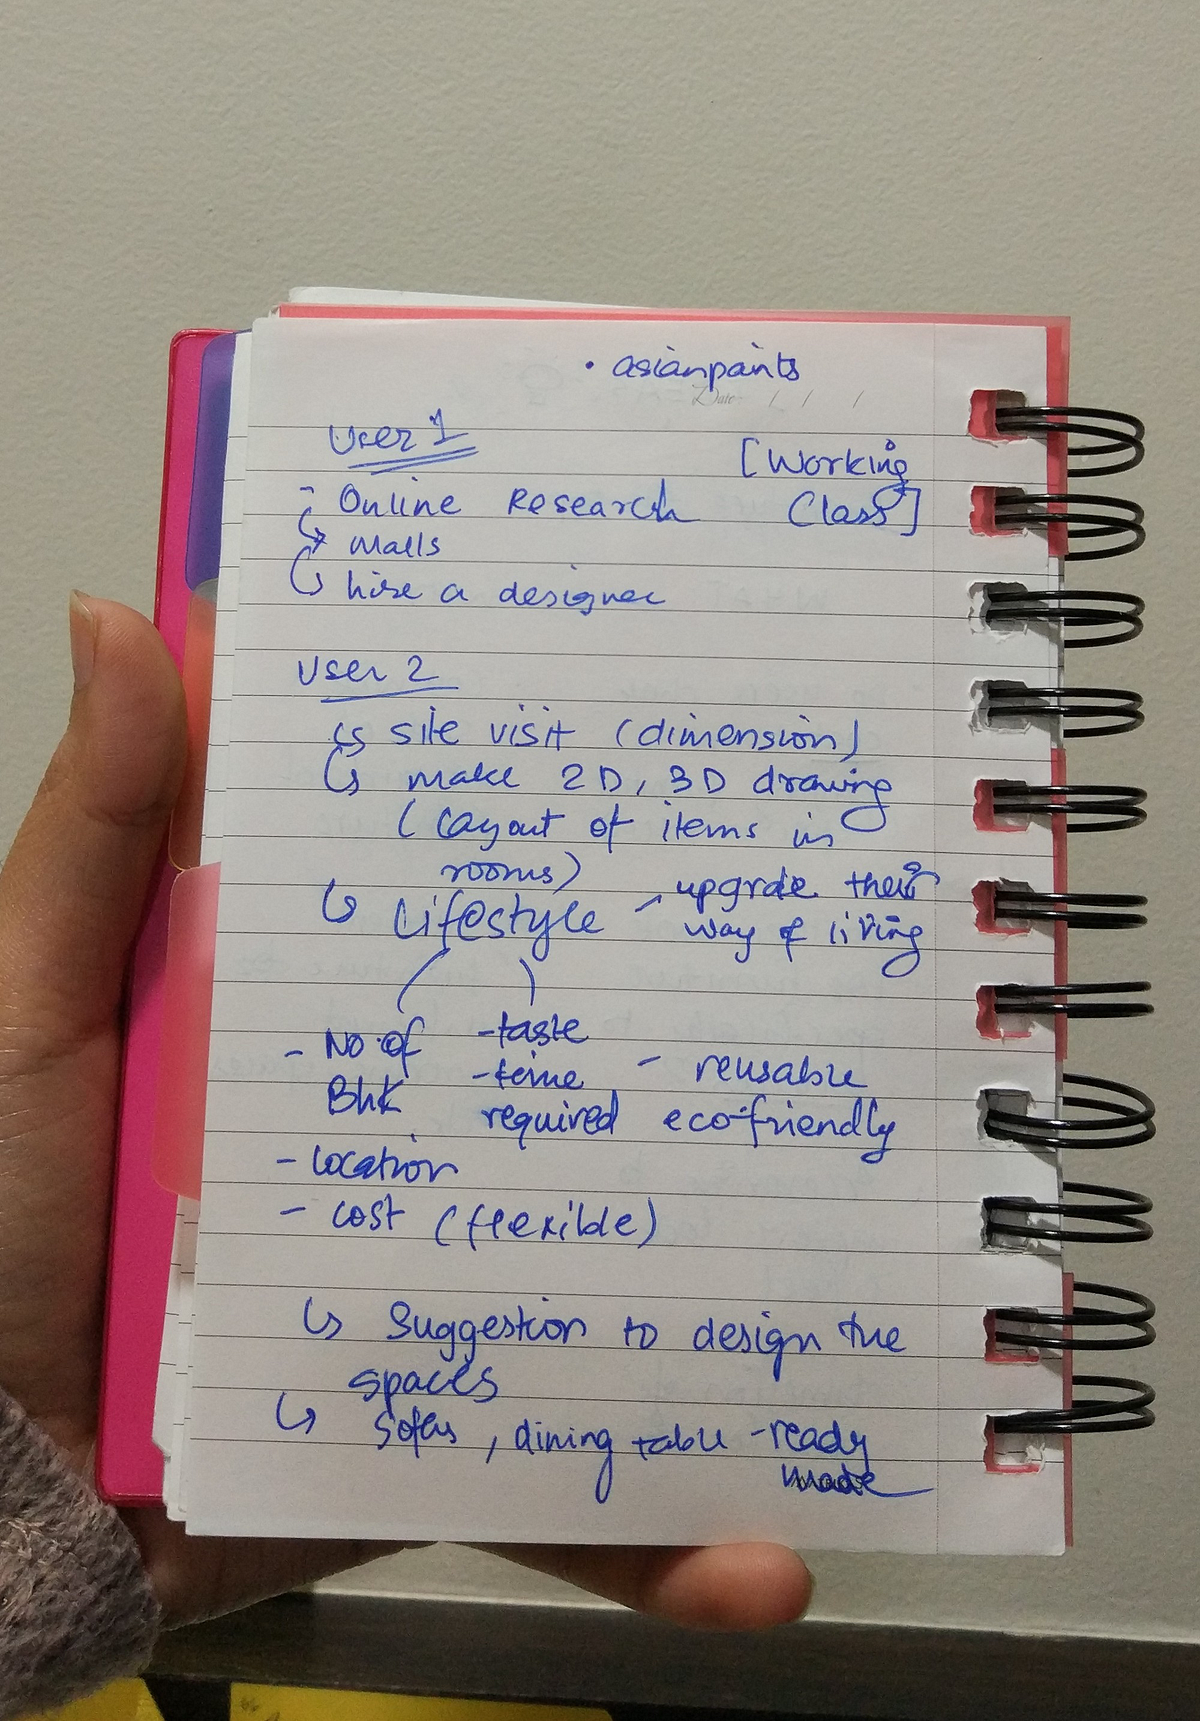 • asianpaints
Date- / / /
User 1
[Working
- Online Research Class]
↳ malls
↳ hire a designer
User 2
↳ site visit (dimension)
↳ make 2D, 3D drawing
(layout of items in
rooms)
↳ Lifestyle - upgrde their
way of living
- No. of - taste
- time - reusable
Bhk required eco-friendly
- Location
- cost (flexible)
↳ Suggestion to design the
spaces
↳ Sofas, dining table - ready
made